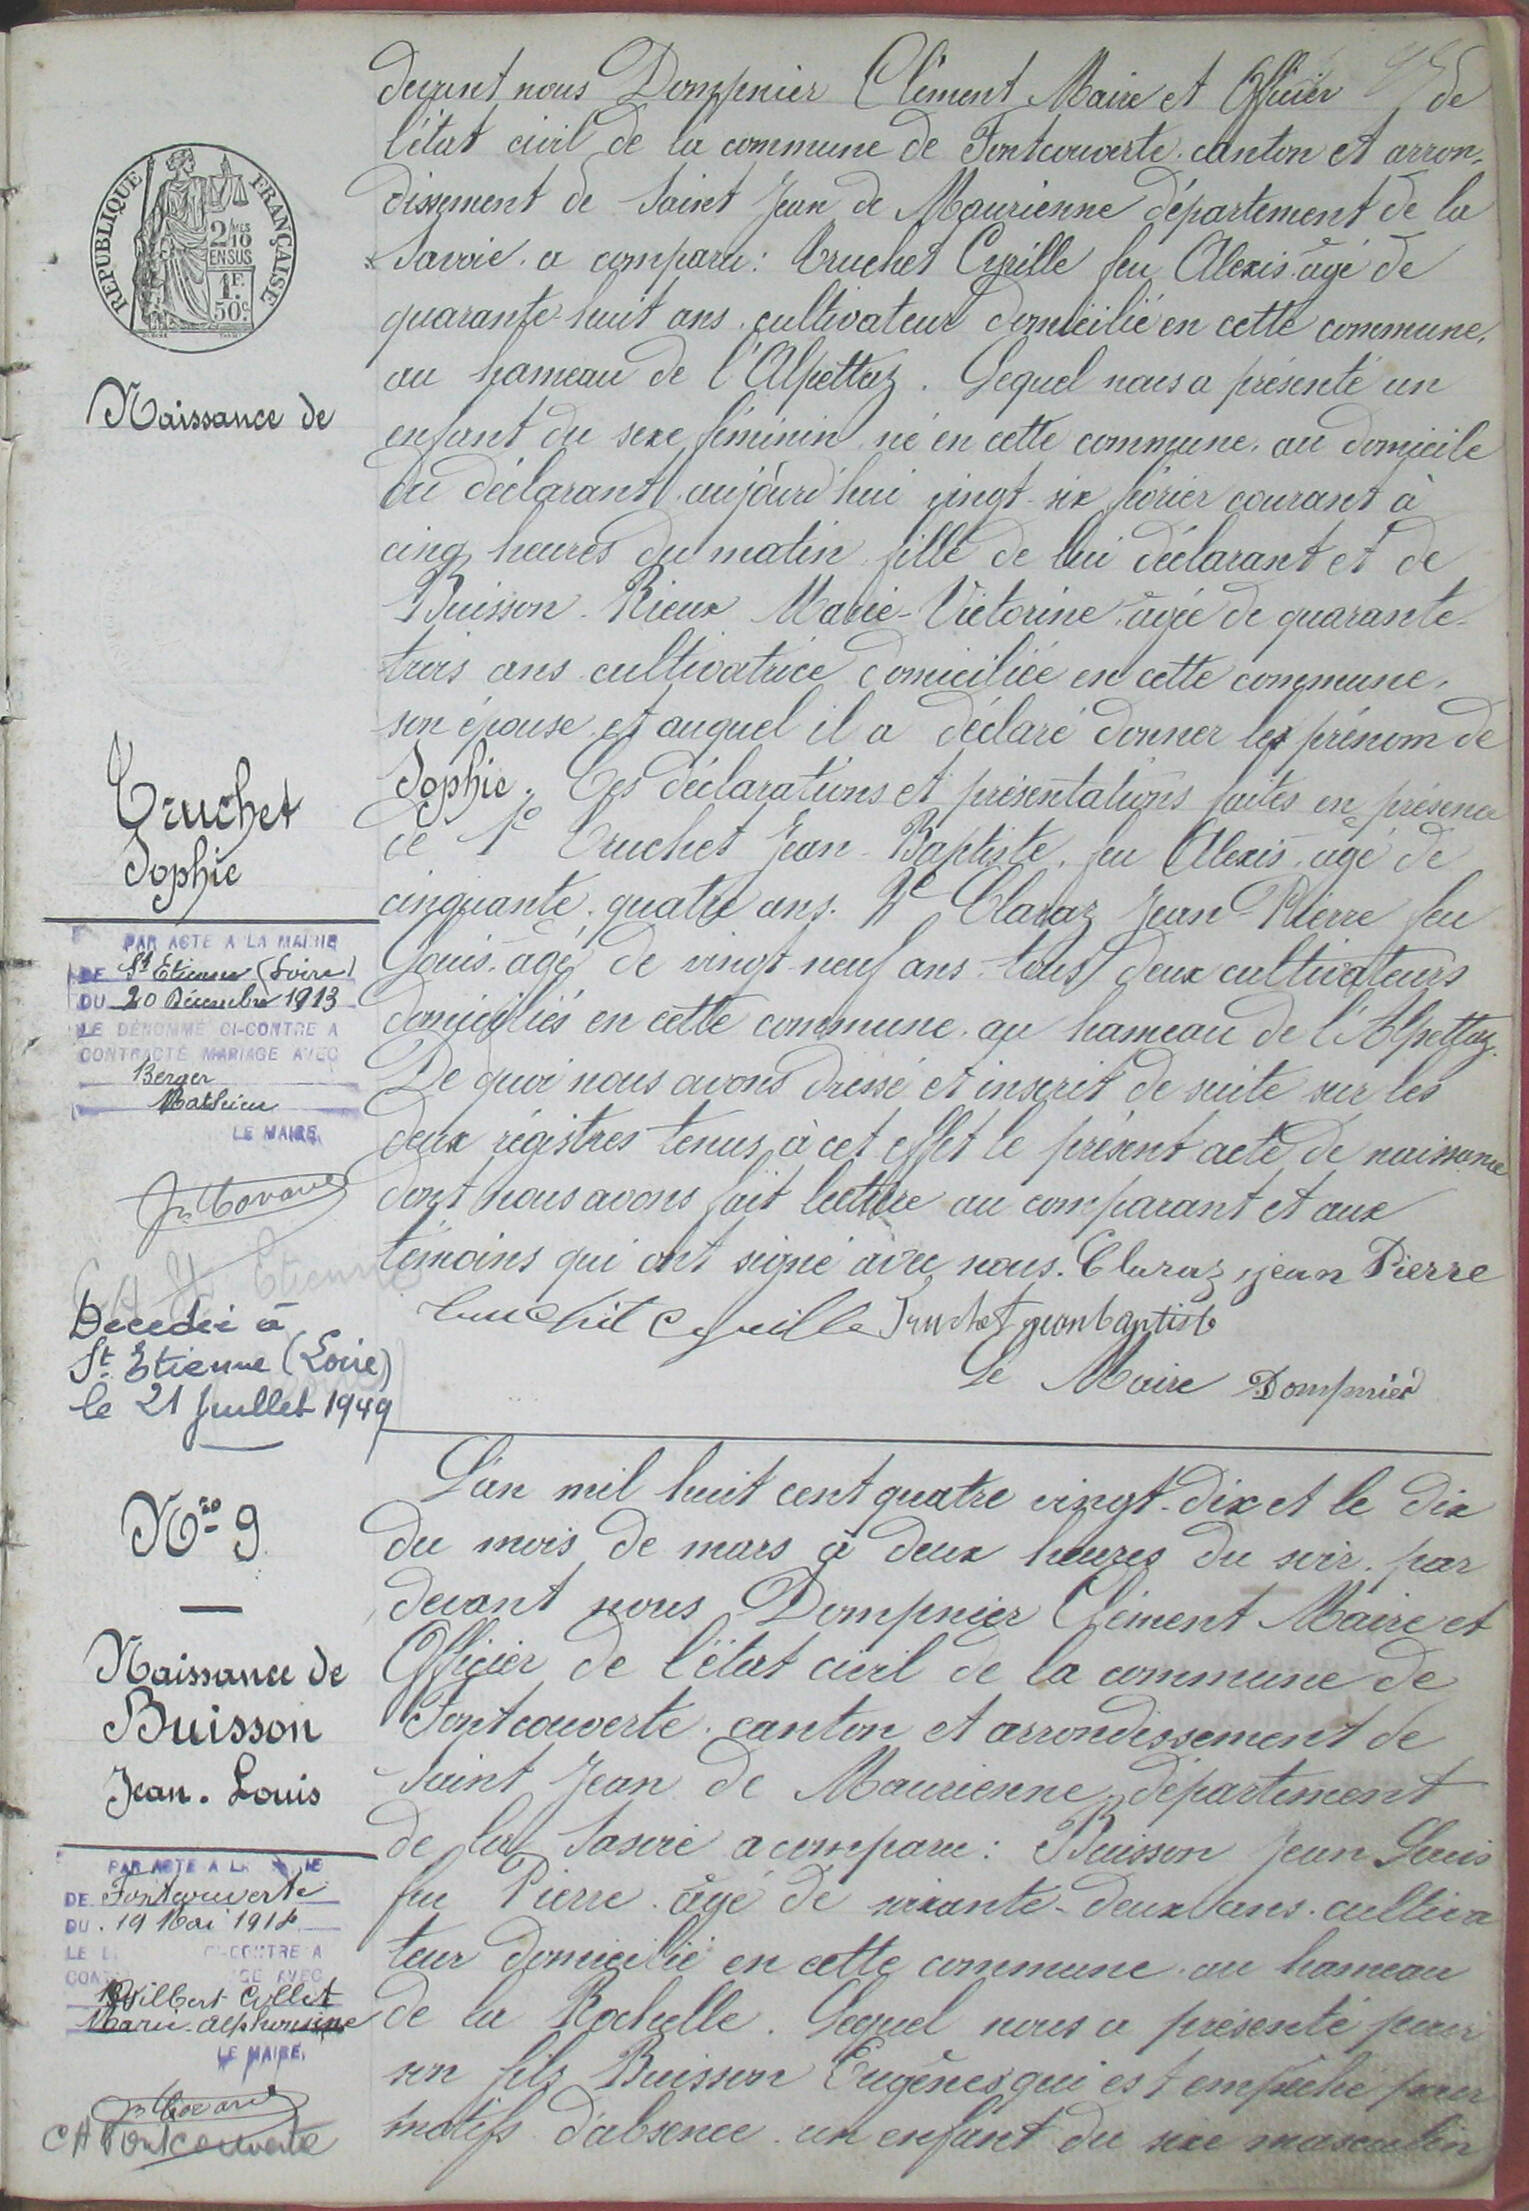 devant nous Dompnier Clément Maire et Officier de
l'état civil de la commune de Fontcouverte, canton et arron-
dissement de Saint Jean de Maurienne département de la
Savoie, a comparu : Truchet Cyrille feu Alexis, âgé de
quarante-huit ans, cultivateur domicilié en cette commune,
au hameau de l'Alpettaz. Lequel nous a présenté un
enfant du sexe féminin, né en cette commune, au domicile
du déclarant, aujourd'hui vingt-six février courant à
cinq heures du matin, fille de lui déclarant et de
Buisson-Rieux Marie-Victorine, âgée de quarante-
trois ans, cultivatrice domiciliée en cette commune,
son épouse, et auquel il a déclaré donner le prénom de
Sophie. Ces déclarations et présentations faites en présence
de 1e Truchet Jean-Baptiste, feu Alexis, âgé de
cinquante-quatre ans. 2e Claraz Jean-Pierre feu
Louis, âgé de vingt-neuf ans, tous deux cultivateurs
domiciliés en cette commune, au hameau de l'Alpettaz.
De quoi nous avons dressé et inscrit de suite sur les
deux régistres tenus à cet effet le présent acte de naissance
dont nous avons fait lecture au comparant et aux
témoins qui ont signé avec nous. Claraz jean Pierre
truchet Cyrille Truchet jean baptiste
Le Maire Dompnier
RÉPUBLIQUE FRANÇAISE
2/10 MES
EN SUS
1F.
50c.
Naissance de
Truchet
Sophie
PAR ACTE A LA MAIRIE
DE St Etienne (Loire)
DU 20 Décembre 1913
LE DÉNOMMÉ CI-CONTRE A
CONTRACTÉ MARIAGE AVEC
Berger
Mathieu
LE MAIRE,
St Etienne
Décédée à
St Etienne (Loire)
le 21 Juillet 1949
Nro 9
Naissance de
Buisson
Jean-Louis
PAR ACTE A LA
DE Fontcouverte
DU 19 Mai 1914
LE CI-CONTRE A
AVEC
Gilbert Collet
Marie-Alphonsine
LE MAIRE,
CA Fontcouverte
L'an mil huit cent quatre vingt-dix et le dix
du mois de mars à deux heures du soir, par
devant nous Dompnier Clément Maire et
Officier de l'état civil de la commune de
Fontcouverte, canton et arrondissement de
Saint Jean de Maurienne, département
de la Savoie a comparu : Buisson Jean Louis
feu Pierre, âgé de soixante-deux ans, cultiva
teur domicilié en cette commune, au hameau
de la Rochelle. Lequel nous a présenté pour
son fils Buisson Eugène qui est empêché pour
motifs d'absence, un enfant du sexe masculin